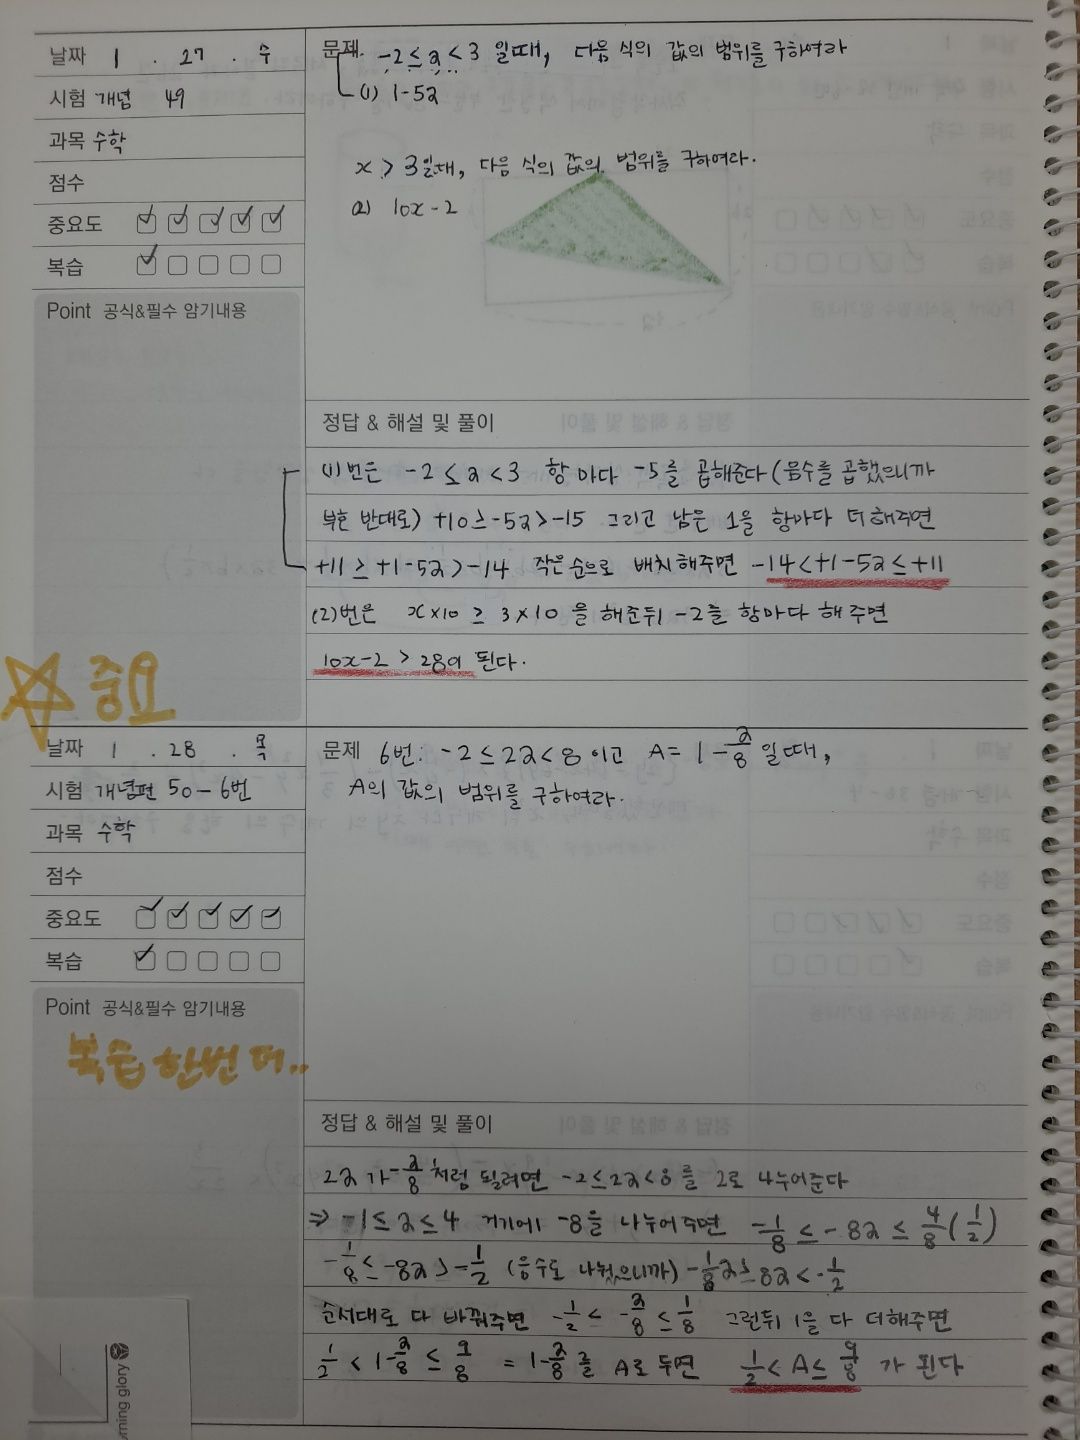 날짜 1 . 27 . 수
시험 개념 49
과목 수학
점수
중요도
복습
Point 공식&필수 암기내용
문제 -2≤a<3 일때, 다음 식의 값의 범위를 구하여라
(1) 1-5a
x>3일때, 다음 식의 값의 범위를 구하여라.
(2) 10x-2
정답 & 해설 및 풀이
(1)번은 -2≤a<3 항마다 -5를 곱해준다(음수를 곱했으니까
부호 반대로) +10≥-5a>-15 그리고 남은 1을 항마다 더해주면
+11≥+1-5a>-14 작은순으로 배치해주면 -14<+1-5a≤+11
(2)번은 x×10≥3×10 을 해준뒤 -2를 항마다 해주면
10x-2>28이 된다.
중요
날짜 1 . 28 . 목
시험 개념편 50-6번
과목 수학
점수
중요도
복습
Point 공식&필수 암기내용
복습 한번 더..
문제 6번: -2≤2a<8 이고 A=1-a/8 일때,
A의 값의 범위를 구하여라.
정답 & 해설 및 풀이
2a가 -a/8처럼 될려면 -2≤2a<8를 2로 나누어준다
⇒ -1≤a≤4 거기에 -8을 나누어주면 -1/8≤-8a≤4/8(1/2)
-1/8≤-8a>-1/2 (음수로 나눴으니까) -1/8a≥8a<-1/2
순서대로 다 바꿔주면 -1/2≤-a/8≤1/8 그런뒤 1을 다 더해주면
1/2<1-a/8≤9/8 = 1-a/8를 A로 두면 1/2<A≤9/8 가 된다
rning glory